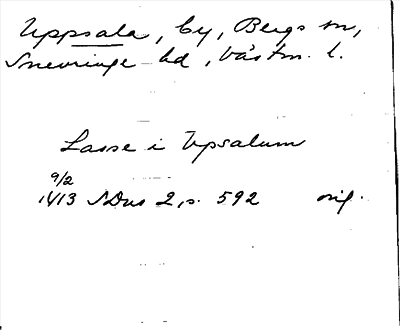 Uppsala, by, Bergs sn,
Snevringe hd, Västm. l.
Lasse i Vpsalum
9/2
1413 SDns 2, s. 592 orig.